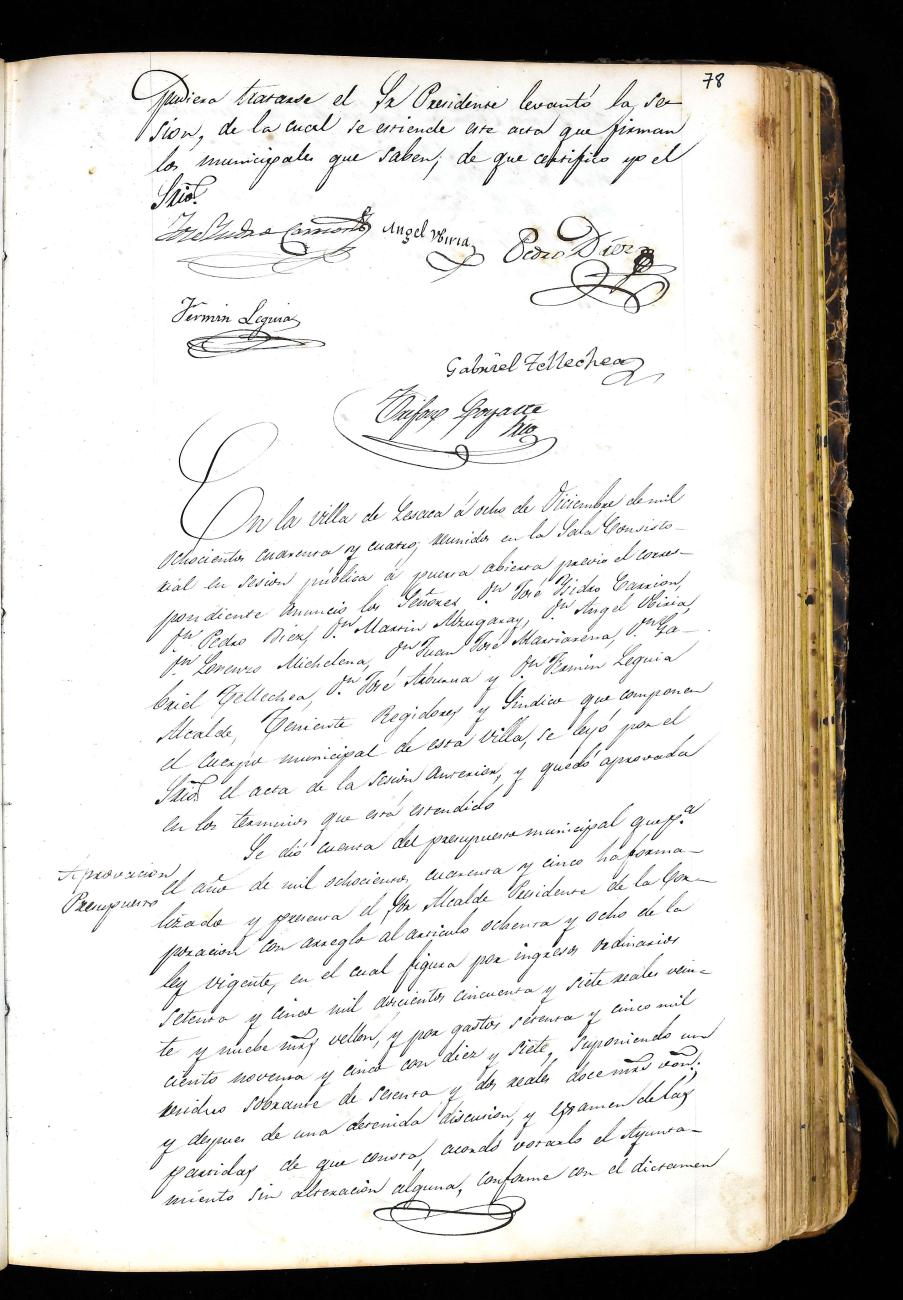 78
pudiera tratarse el Sr Presidente levantó la se-
sion, de la cual se estiende este acta que firman
los municipales que saben, de que certifico yo el
Srio.
José Ysidro Carrion
Angel Ybiria
Pedro Diez
Fermin Leguia
Gabriel Tellechea
Goyaste
Srio
En la villa de Lesaca á ocho de Diciembre de mil
ochocientos cuarenta y cuatro; reunidos en la Sala Consisto-
rial en sesion pública á puerta abierta previo el corres-
pondiente anuncio los Señores Dn José Ysidro Carrion,
Dn Pedro Diez, Dn Martin Alzugaray, Dn Angel Ybiria,
Dn Lorenzo Michelena, Dn Juan José Marriarena, Dn Ga-
briel Tellechea, Dn José y Dn Fermin Leguia
Alcalde, Teniente Regidores y Sindico que componen
el cuerpo municipal de esta villa, se leyó por el
Srio el acta de la sesion anterior, y quedó aprovada
en los terminos que está estendido
Aprovacion
Presupuesto
Se dió cuenta del presupuesto municipal que pa
el año de mil ochocientos cuarenta y cinco ha forma-
lizado y presenta el Sor Alcalde Presidente de la Cor-
poracion con arreglo al articulo ochenta y ocho de la
ley vigente, en el cual figura por ingresos ordinarios
setenta y cinco mil doscientos cincuenta y siete reales vein-
te y nuebe mrs vellon, y por gastos setenta y cinco mil
ciento noventa y cinco con diez y siete, suponiendo un
residuo sobrante de sesenta y dos reales doce mrs von;
y despues de una detenida discusion, y examen de las
partidas de que consta, acordó votarlo el Ayunta-
miento sin alteracion alguna, conforme con el dictamen